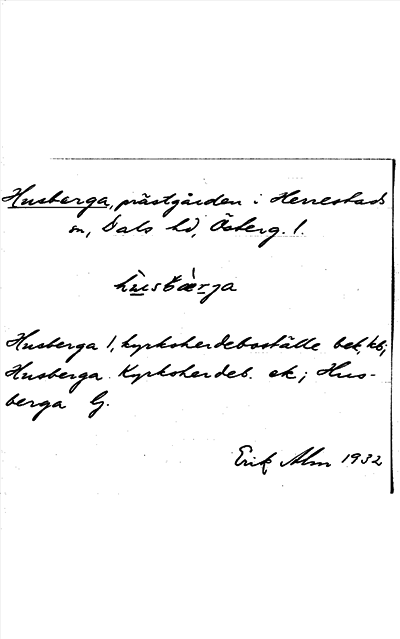 Husberga, prästgården i Herrestads
sn, Dals hd, Österg. l.
hùsbæ̀rja
Husberga !, kyrkoherdeboställe bek, kb;
Husberga Kyrkoherdeb. ek; Hus-
berga G.
Erik Alm 1932